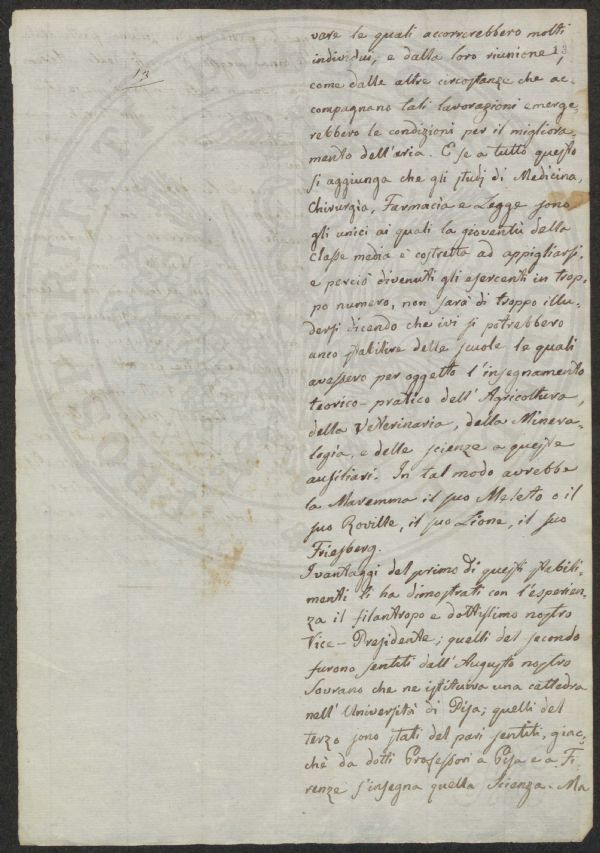 13
vare le quali accorrerebbero molti
individui, e dalla loro riunione, 13
come dalle altre circostanze che ac-
compagnano tali lavorazioni emerge-
rebbero le condizioni per il migliora-
mento dell'aria. E se a tutto questo
si aggiunga che gli studj di Medicina,
Chirurgia, Farmacia e Legge sono
gli unici ai quali la gioventù della
classe media è costretta ad appigliarsi,
e perciò divenuti gli esercenti in trop-
po numero, non sarà di troppo illu-
dersi dicendo che ivi si potrebbero
anco stabilire delle scuole le quali
avessero per oggetto l'insegnamento
teorico-pratico dell'Agricoltura,
della Veterinaria, della Minera-
logia, e delle scienze a queste
ausiliari. In tal modo avrebbe
la Maremma il suo Meleto o il
suo Roville, il suo Lione, il suo
Frieberg.
I vantaggi del primo di questi stabili-
menti li ha dimostrati con l'esperien-
za il filantropo e dottissimo nostro
Vice-Presidente; quelli del secondo
furono sentiti dall'Augusto nostro
Sovrano che ne istituiva una cattedra
nell'Università di Pisa; quelli del
terzo sono stati del pari sentiti, giac-
chè da dotti Professori a Pisa e a Fi-
renze s'insegna quella Scienza. Ma